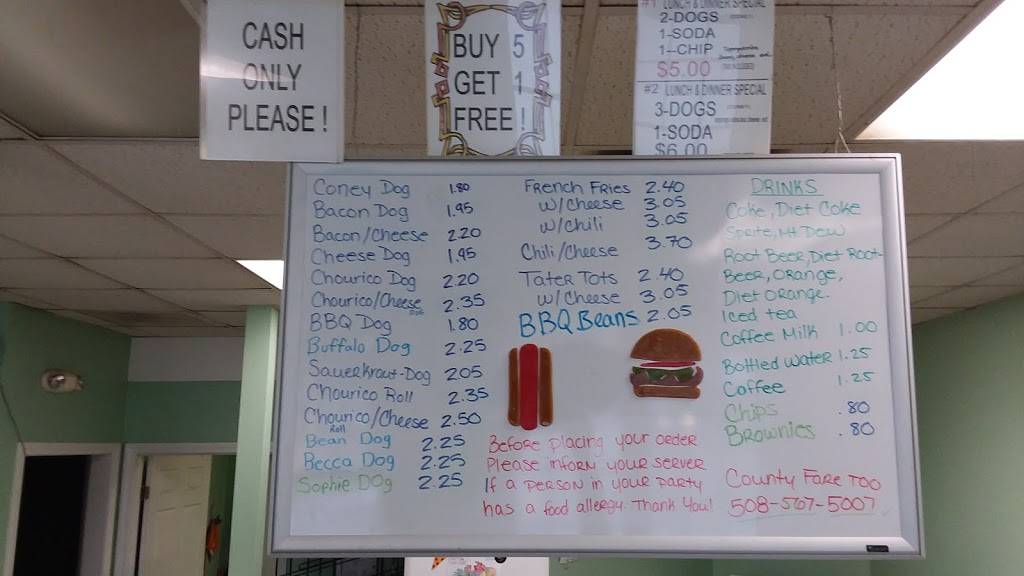 CASH
ONLY
PLEASE!
BUY 5
GET 1
FREE!
#1 LUNCH & DINNER SPECIAL
2-DOGS
1-SODA
1-CHIP
$5.00
#2 LUNCH & DINNER SPECIAL
3-DOGS
1-SODA
$6.00
Coney Dog 1.80
Bacon Dog 1.95
Bacon/Cheese 2.20
Cheese Dog 1.95
Chourico Dog 2.20
Chourico/Cheese Dog 2.35
BBQ Dog 1.80
Buffalo Dog 2.25
Sauerkraut-Dog 2.05
Chourico Roll 2.35
Chourico/Cheese Roll 2.50
Bean Dog 2.25
Becca Dog 2.25
Sophie Dog 2.25
French Fries 2.40
w/Cheese 3.05
w/chili 3.05
Chili/Cheese 3.70
Tater Tots 2.40
w/Cheese 3.05
BBQ Beans 2.05
Before placing your order
Please inform your server
If a person in your party
has a food allergy. Thank You!
DRINKS
Coke, Diet Coke
Sprite, Mt Dew
Root Beer, Diet Root-
Beer, Orange,
Diet Orange.
Iced tea
Coffee Milk 1.00
Bottled Water 1.25
Coffee 1.25
Chips .80
Brownies .80
County Fare Too
508-567-5007